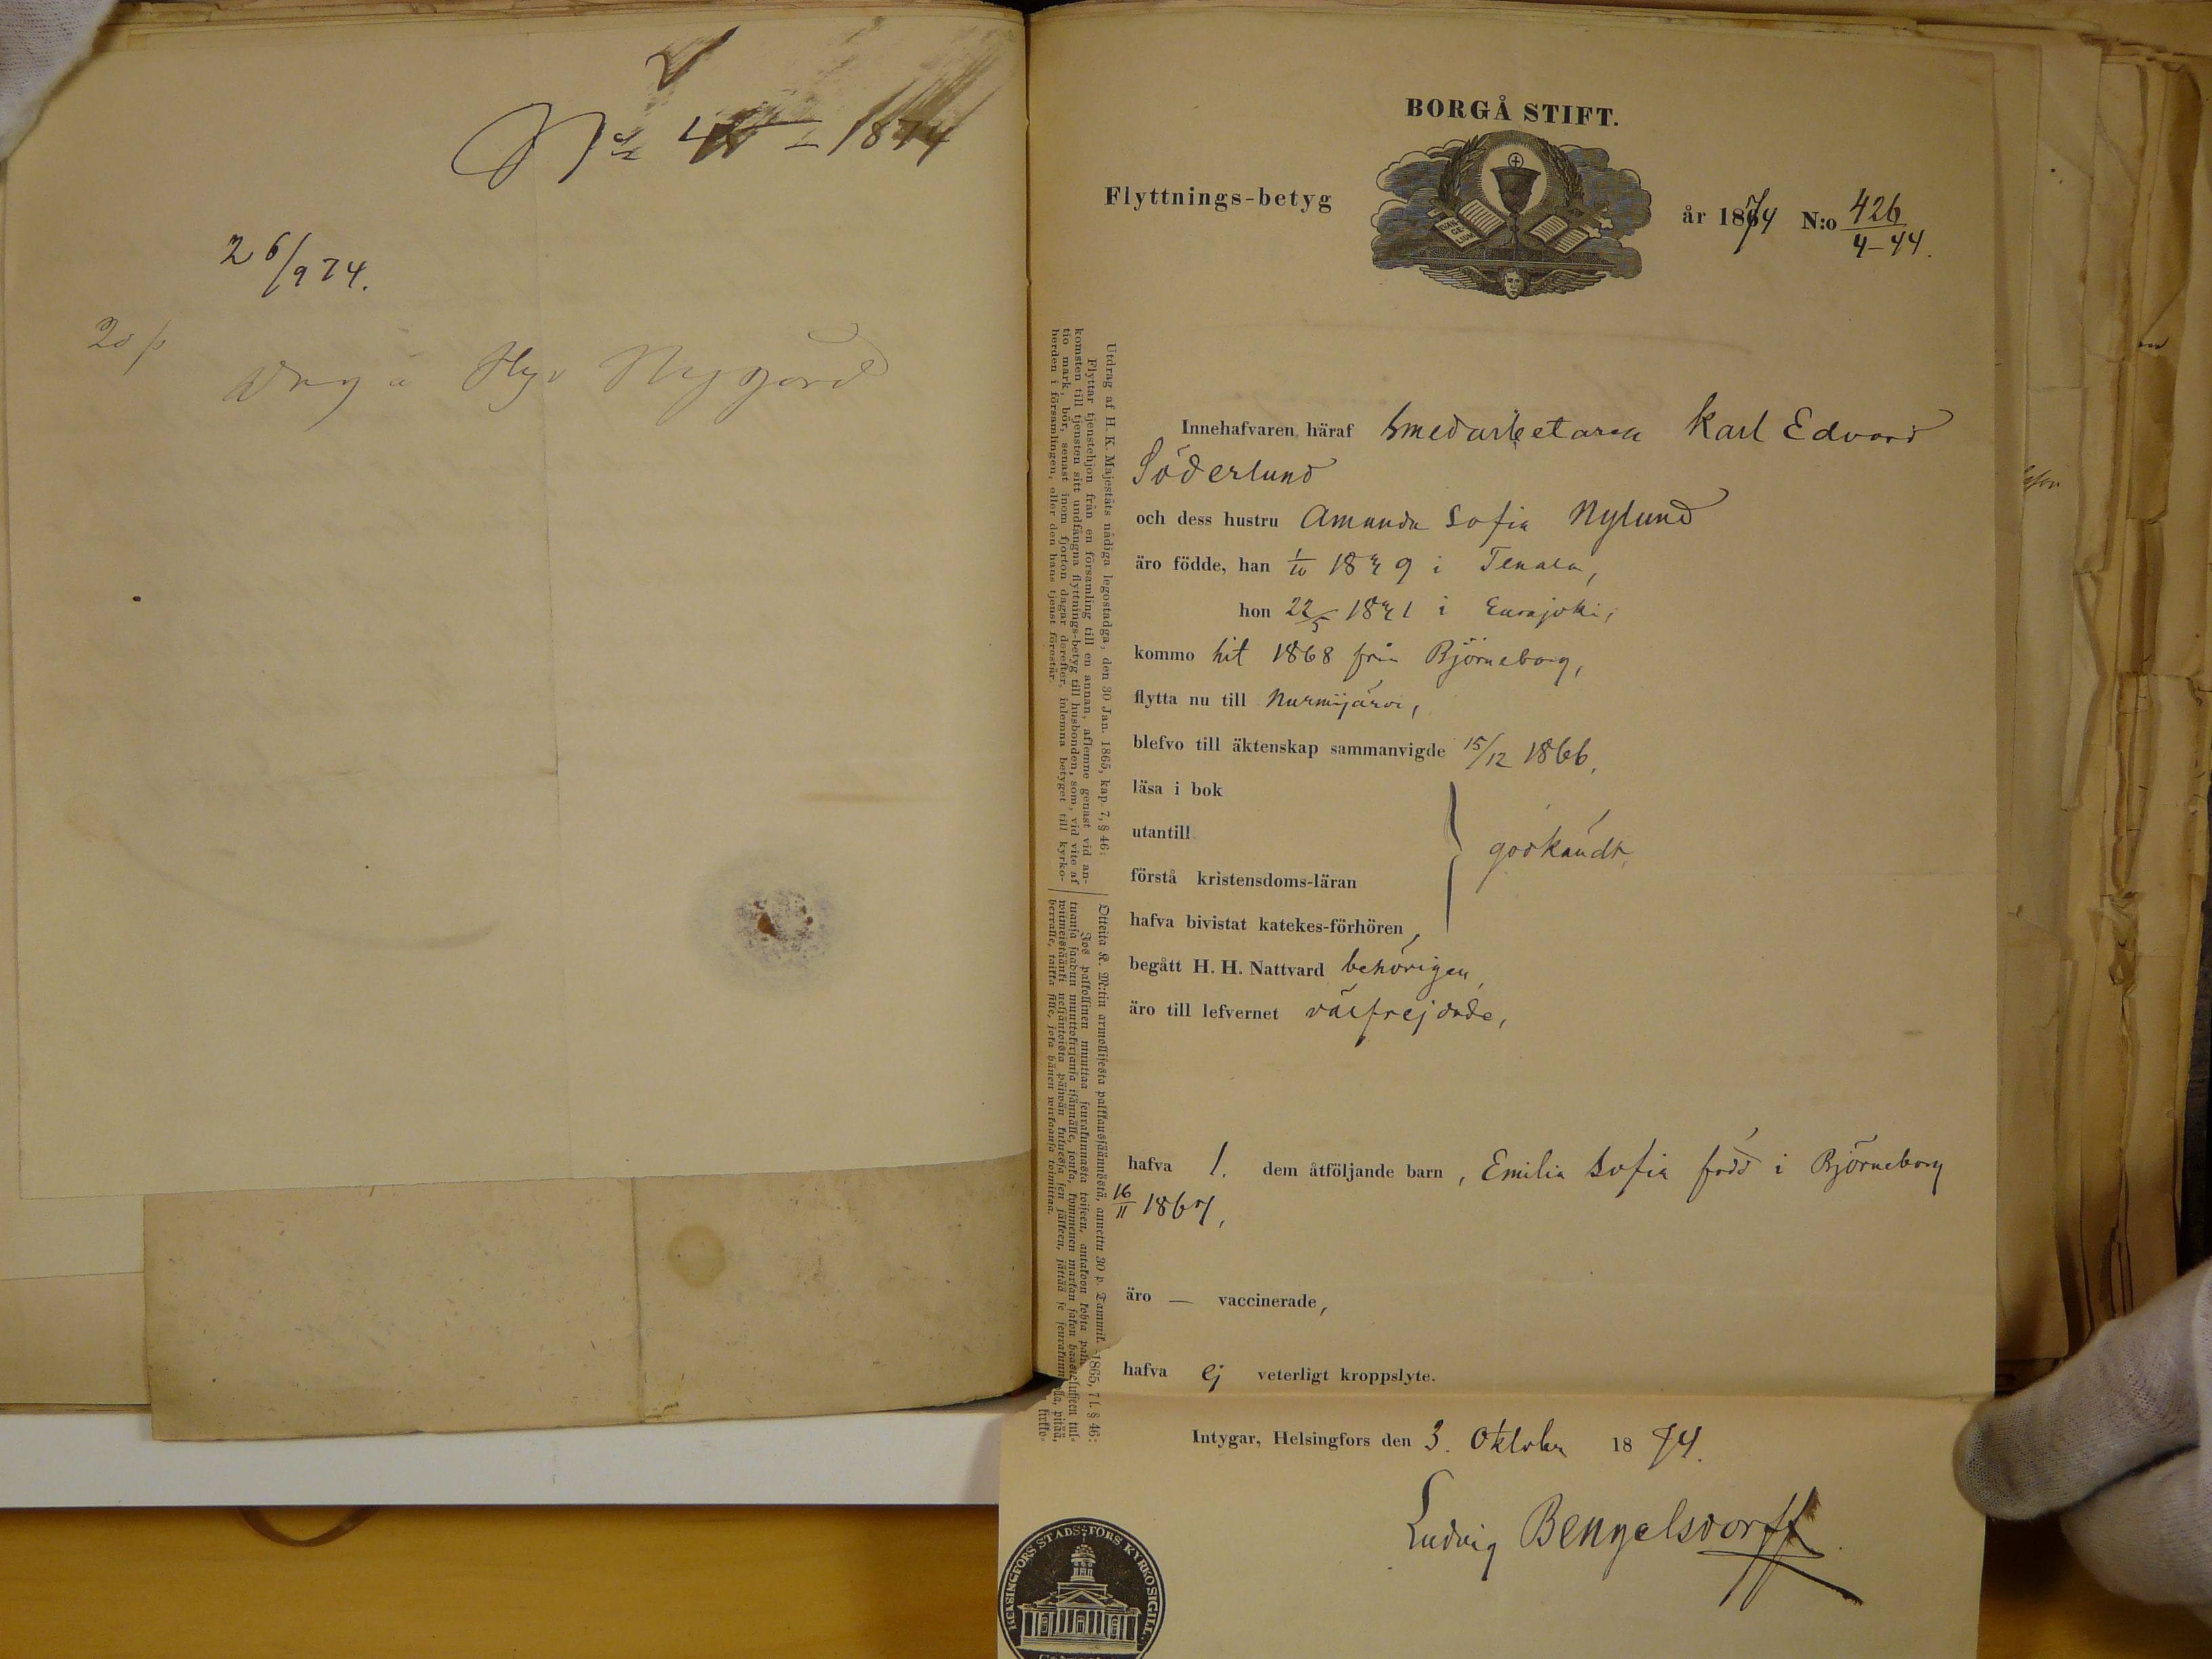 1874
26/9 74.
20 p
Nygård
BORGÅ STIFT.
Flyttnings-betyg
år 1874 N:o 426
4-44.
EVAN
GE
LIUM
Innehafvaren häraf Smedarbetaren Karl Edvard
Söderlund
och dess hustru Amanda Sofia Nylund
äro födde, han 1/10 1849 i Tenala,
hon 22/5 1841 i Eurajoki,
kommo hit 1868 från Björneborg,
flytta nu till Nurmijärvi,
blefvo till äktenskap sammanvigde 15/12 1866,
läsa i bok
utantill
godkändt,
förstå kristensdoms-läran
hafva bivistat katekes-förhören,
begått H. H. Nattvard behörigen,
äro till lefvernet välfrejdade,
hafva 1. dem åtföljande barn, Emilia Sofia född i Björneborg
16/11 1867,
äro — vaccinerade,
hafva ej veterligt kroppslyte.
Intygar, Helsingfors den 3. Oktober 1874.
Ludvig Bengelsdorff
HELSINGFORS STADS-FÖRS KYRKOSIGILL
Utdrag af H. K. Majestäts nådiga legostadga, den 30 Jan. 1865, kap. 7, § 46:
Flyttar tjenstehjon från en församling till en annan, aflemne genast vid an-
komsten till tjensten sitt undfångna flyttnings-betyg till husbonden, som, vid vite af
tio mark, bör, senast inom fjorton dagar derefter, inlemna betyget till kyrko-
herden i församlingen, eller den hans tjenst förestår.
Otteita K. M:tin armollisesta palkkaussäännöstä, annettu 30 p. Tammik. 1865, 7 l. § 46:
Jos palkollinen muuttaa seurakunnasta toiseen, antakoon kohta
tuansa saadun muuttokirjansa isännälle, jonka, kymmenen markan sakon haastolla
wiimeistäänki neljäntoista päiwän kuluessa sen jälkeen, jättää se
herralle, taikka sille, joka hänen wirkaansa toimittaa.